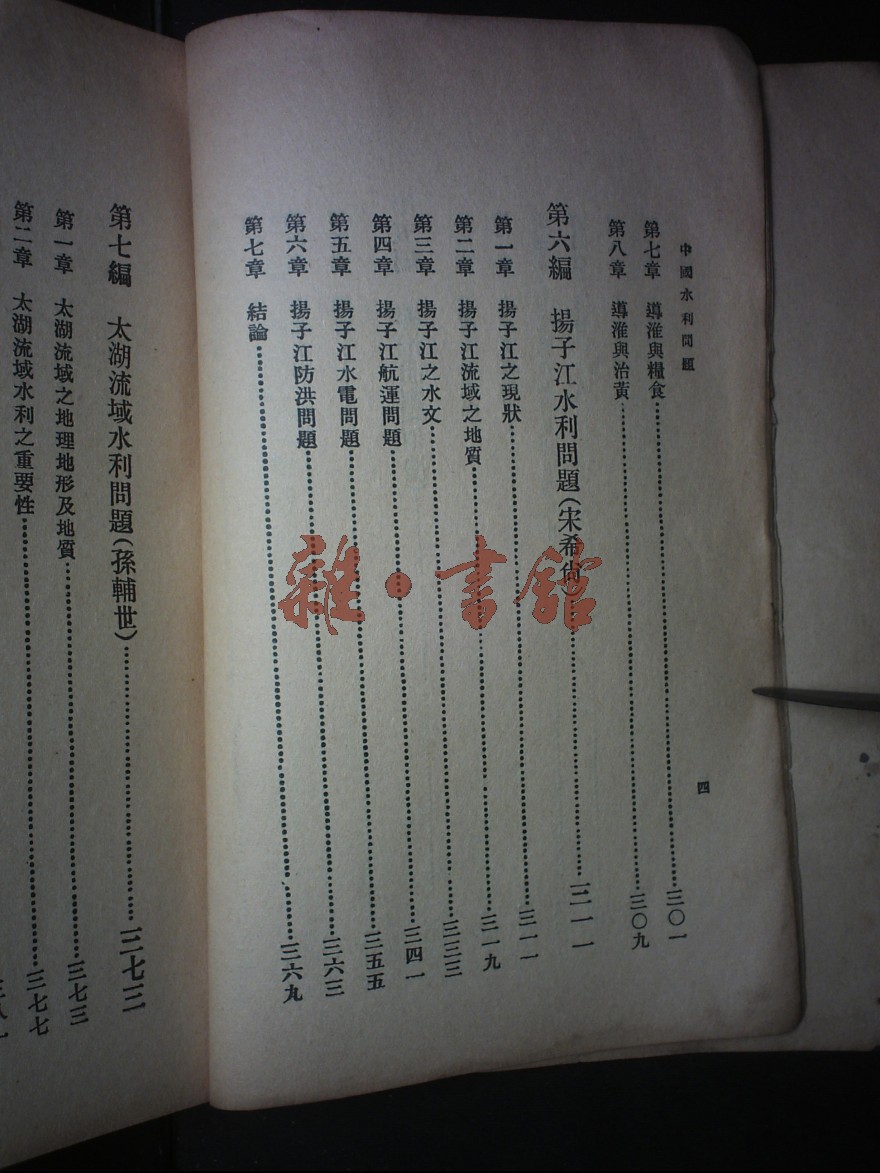 中國水利問題
第七章 導淮與糧食 三〇一
第八章 導淮與治黃 三〇九
第六編 揚子江水利問題(宋希尙) 三一一
第一章 揚子江之現狀 三一一
第二章 揚子江流域之地質 三一九
第三章 揚子江之水文 三三三
第四章 揚子江航運問題 三四一
第五章 揚子江水電問題 三五五
第六章 揚子江防洪問題 三六三
第七章 結論 三六九
四
雜·書館
第七編 太湖流域水利問題(孫輔世) 三七三
第一章 太湖流域之地理地形及地質 三七三
第二章 太湖流域水利之重要性 三七七
三八一